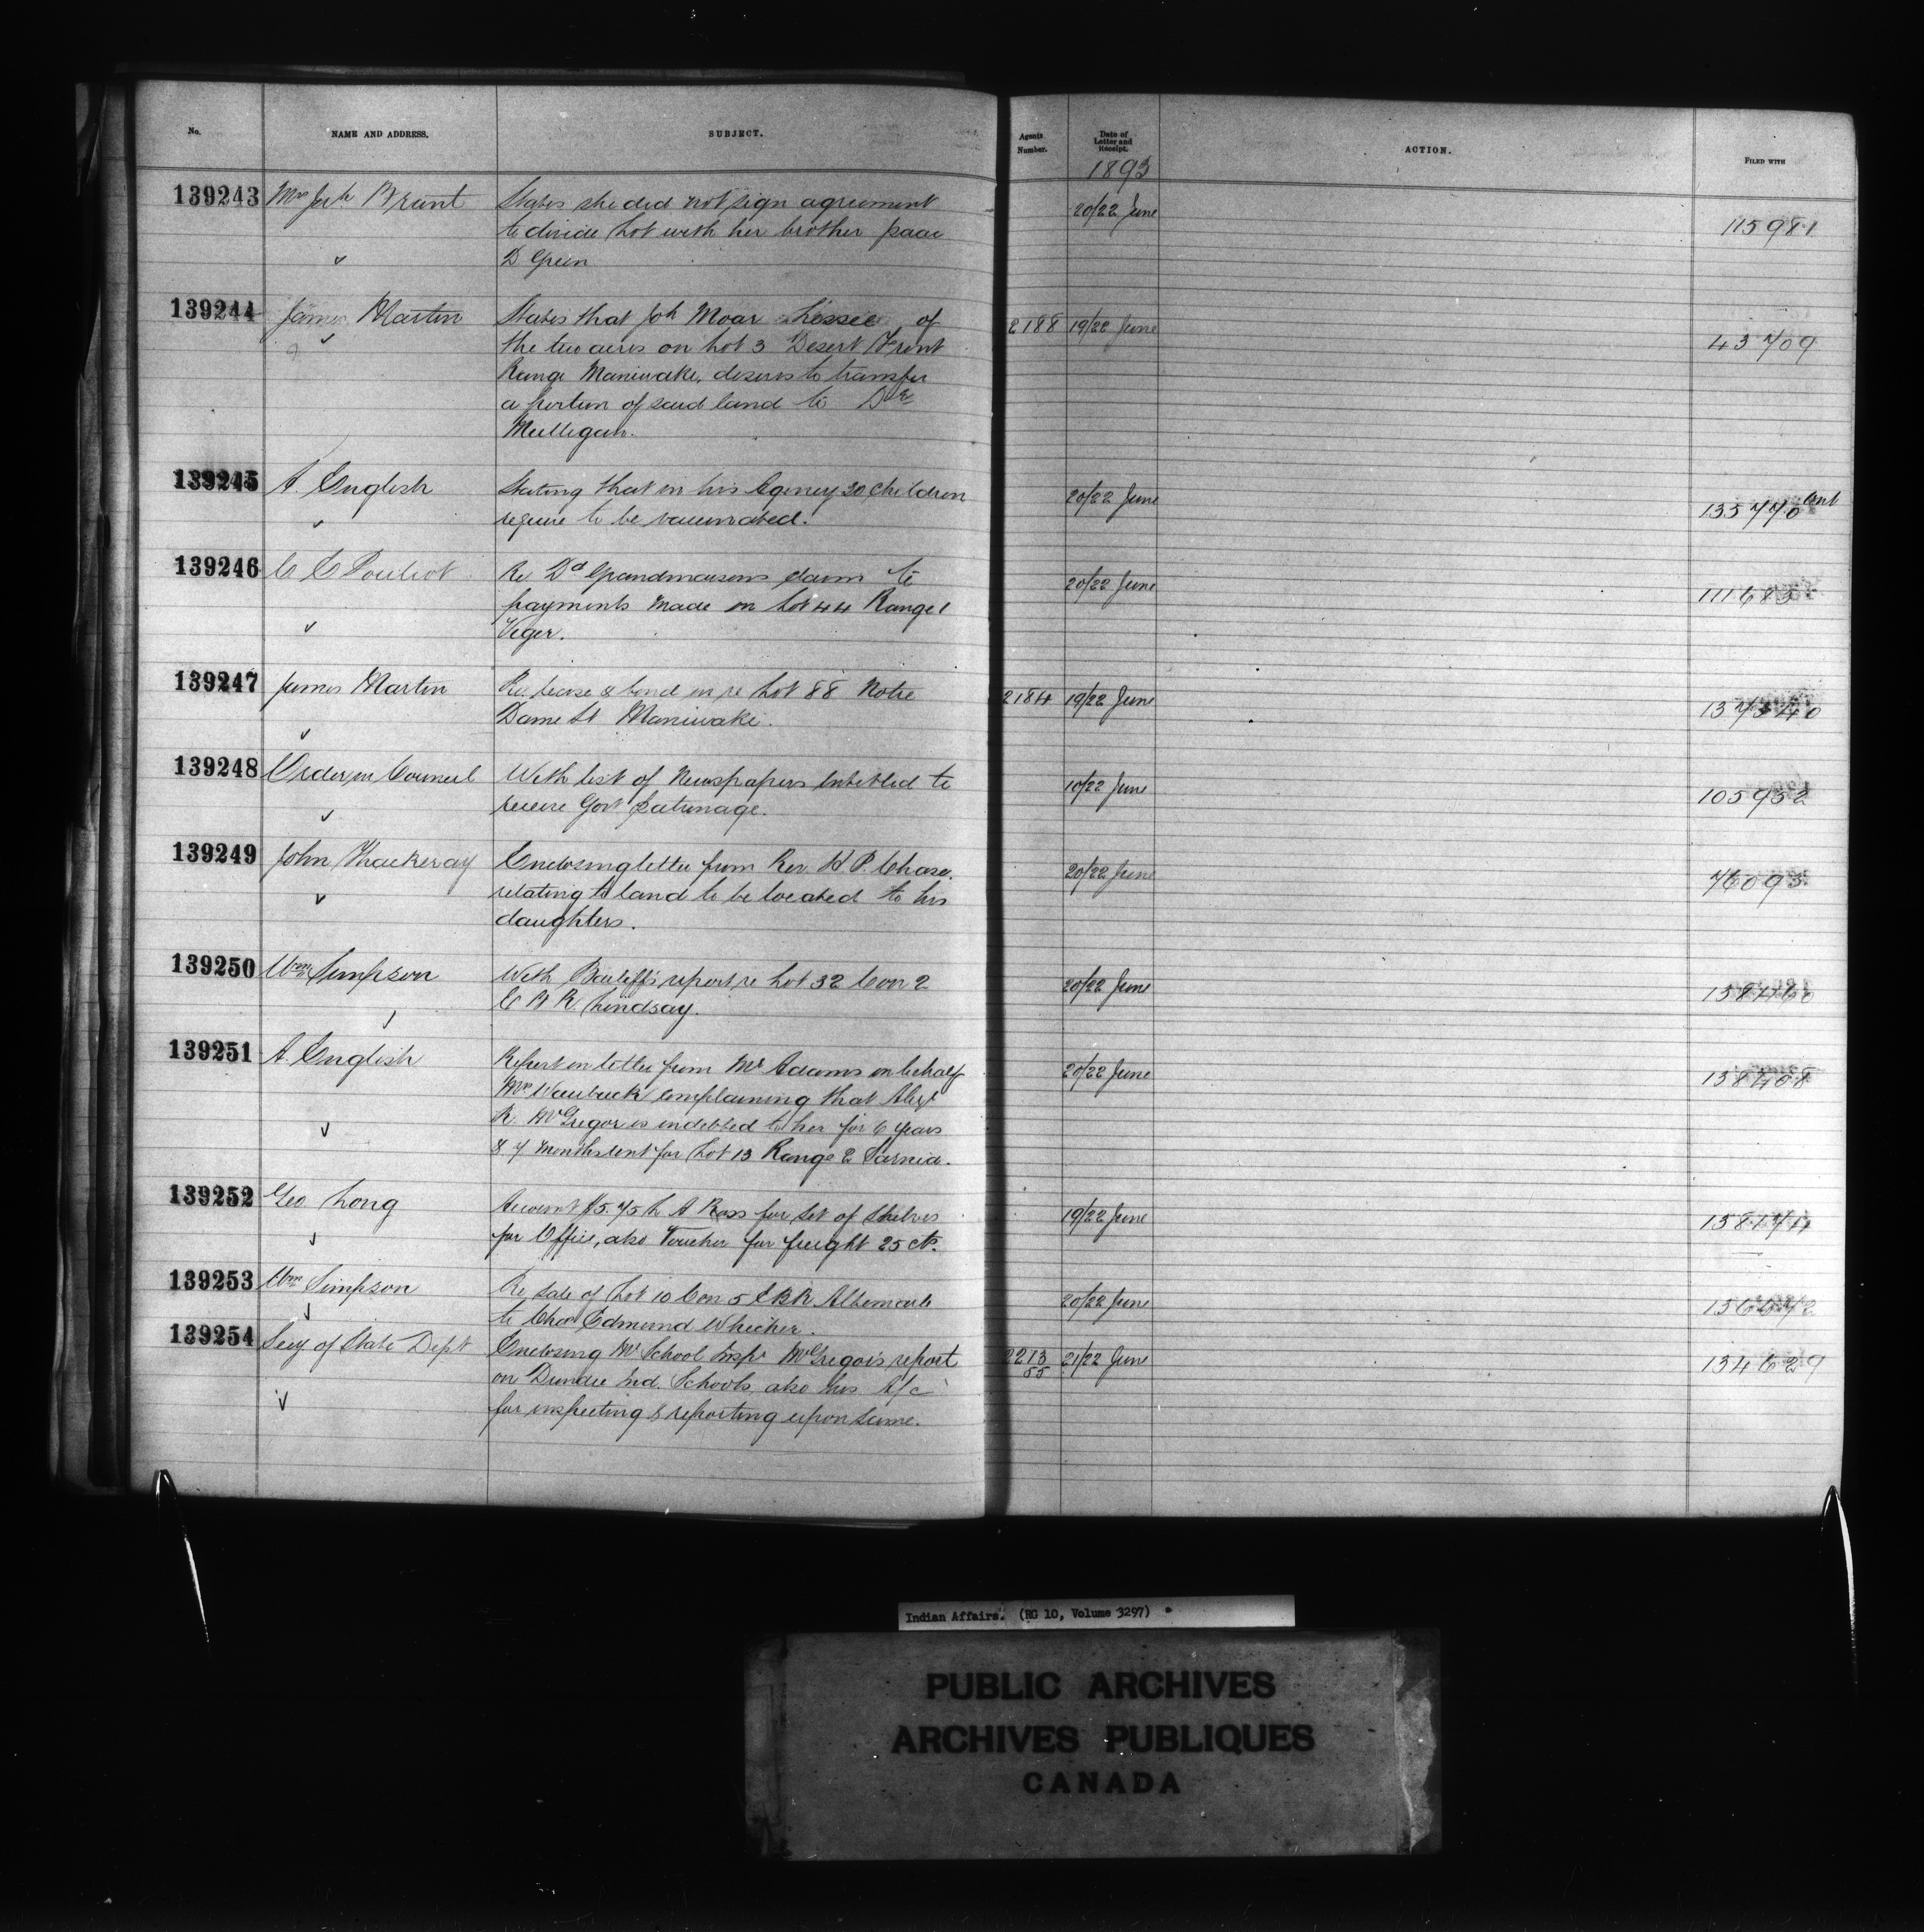 No.
NAME AND ADDRESS.
SUBJECT.
Agents Number.
Date of Letter and Receipt.
ACTION.
FILED WITH
1893
139243 Mrs Jn Brant States she did not sign agreement 20/22 June 115981
to divide Lot with her brother Isaac
D Green
139244 James Martin States that Jon Moar Lessee of 2188 19/22 June 43709
the two acres on Lot 3 Desert Front
Range Maniwaki, desires to transfer
a portion of said land to Dr
Mulligan.
139245 A. English Stating that in his Agency 30 children 20/22 June 135770
require to be vaccinated.
139246 C C Pouliot Re Dd Grandmaisons claim to 20/22 June 111683
payments made on Lot 44 Range 1
Viger.
139247 James Martin Re lease & bond in re Lot 88 Notre 2184 19/22 June 137340
Dame St Maniwaki.
139248 Order in Council With list of Newspapers entitled to 10/22 June 105952
receive Govt patronage.
139249 John Thackeray Enclosing letter from Rev. H. P. Chase. 20/22 June 76093
relating to land to be located to his
daughters.
139250 Wm Simpson With Bailiff's report re Lot 32 Con 2 20/22 June
E B R. Lindsay.
139251 A. English Report on letter from Mr Adams on behalf 20/22 June
Mrs Waubuck complaining that Alex
R. McGregor is indebted to her for 6 years
& 7 months rent for Lot 13 Range 2 Sarnia.
139252 Geo Long Account $5.75 A Ross for set of shelves 19/22 June
for Office, also Voucher for freight 25 cts.
139253 Wm Simpson Re sale of Lot 10 Con 5 E B R Albemarle 20/22 June
to Chas Edmund Whicher.
139254 Secy of State Dept Enclosing Mr School Inspr McGregor's report 2213/55 21/22 June 134629
on Dundee Ind. Schools also his A/c
for inspecting & reporting upon same.
Indian Affairs. (RG 10, Volume 3297)
PUBLIC ARCHIVES
ARCHIVES PUBLIQUES
CANADA